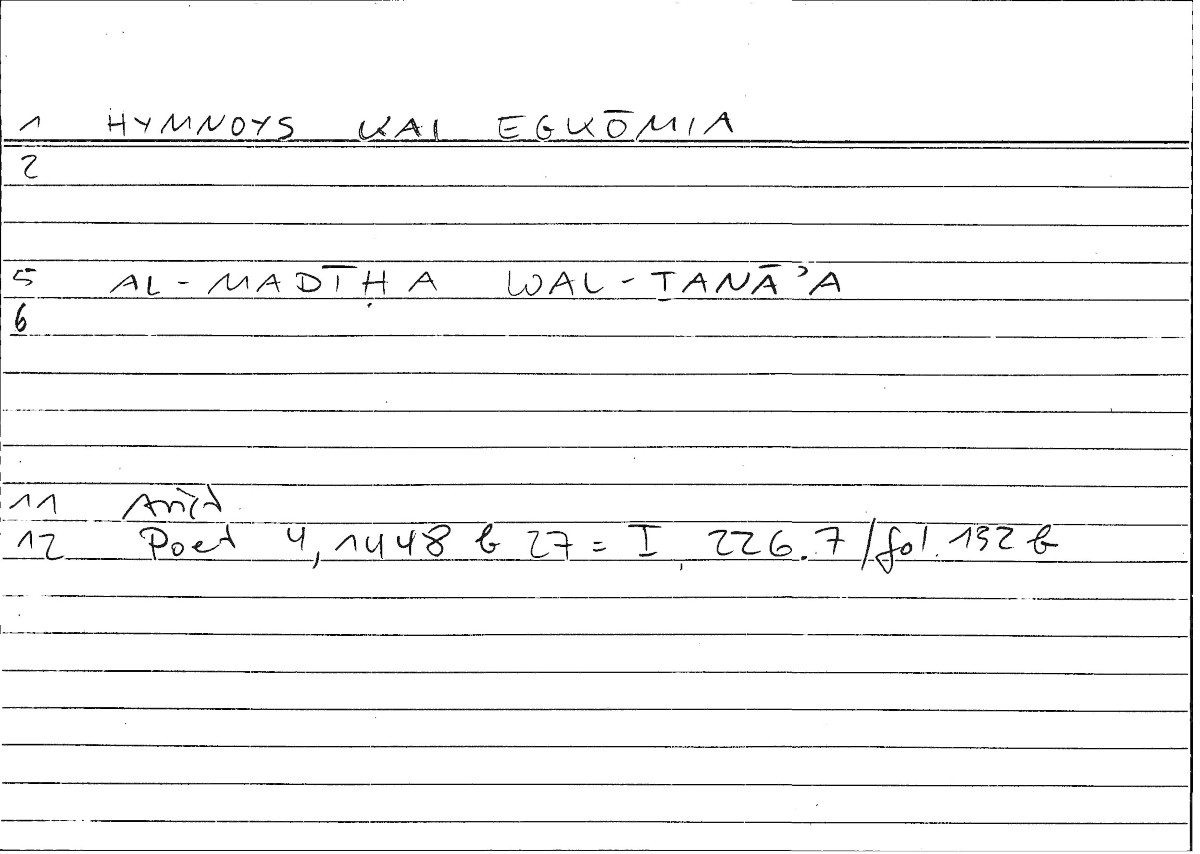 1 HYMNOYS KAI EGKŌMIA
2
5 AL-MADĪḤA WAL-ṮANĀʾA
6
11 Arist
12 Poet 4,1448 b 27 = I, 226.7 / fol. 132 b